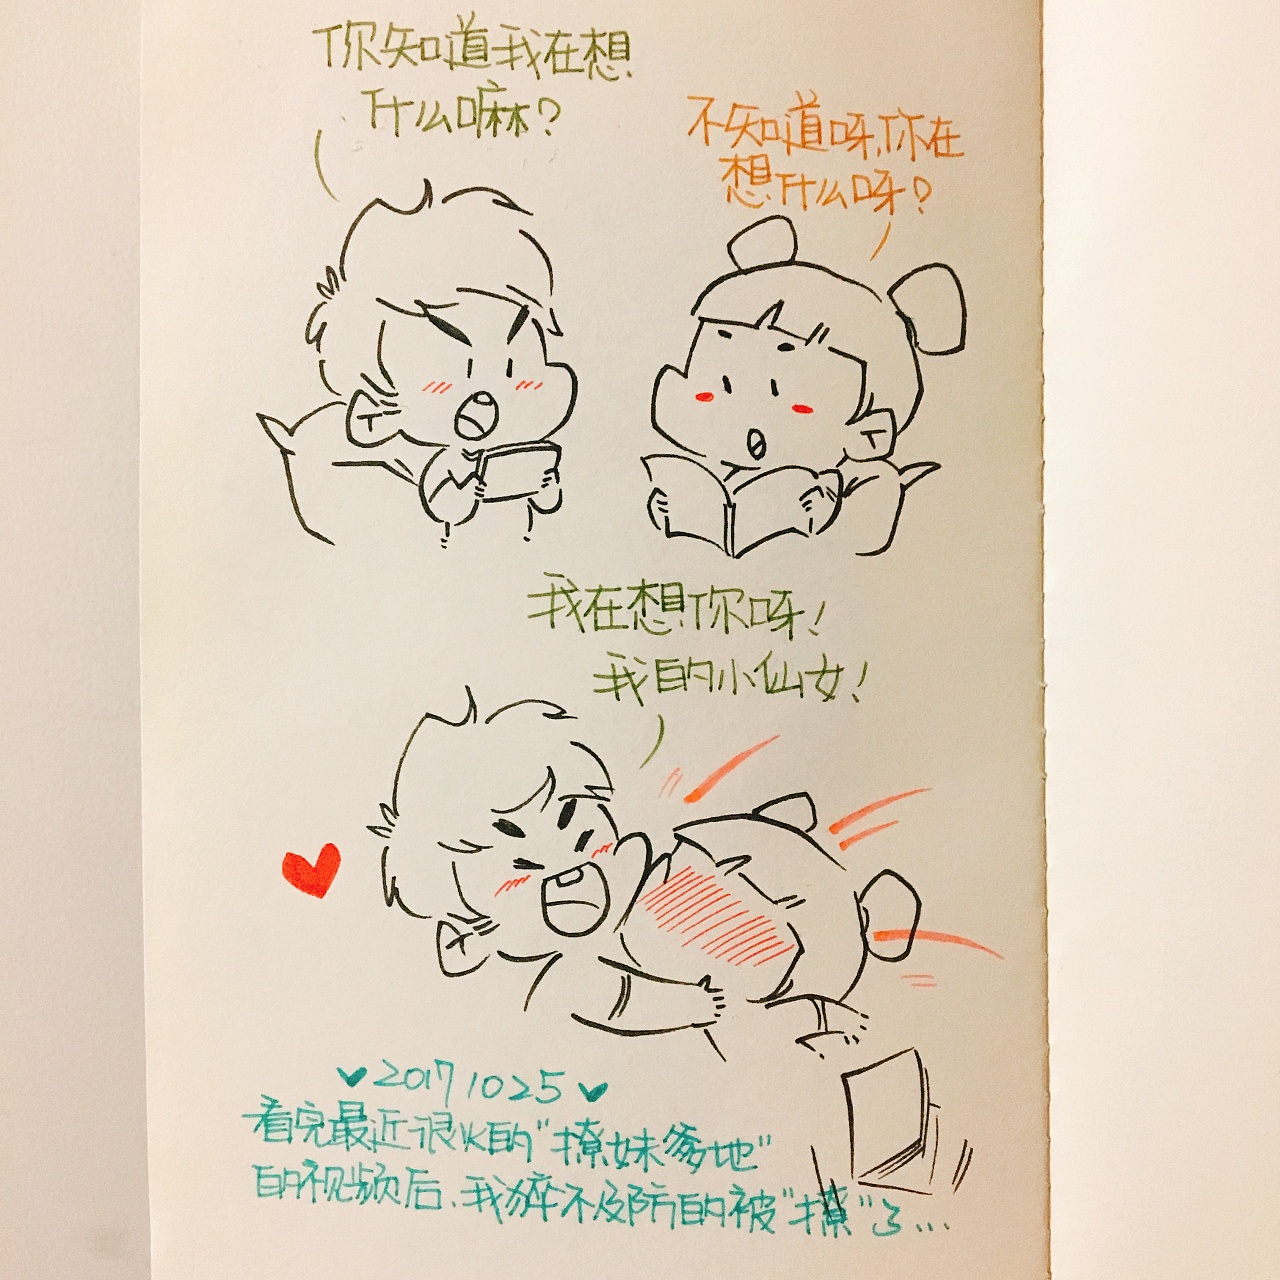 你知道我在想
什么嘛？
不知道呀，你在
想什么呀？
我在想你呀！
我的小仙女！
20171025
看完最近很火的"撩妹爹地"
的视频后，我猝不及防的被"撩"了...